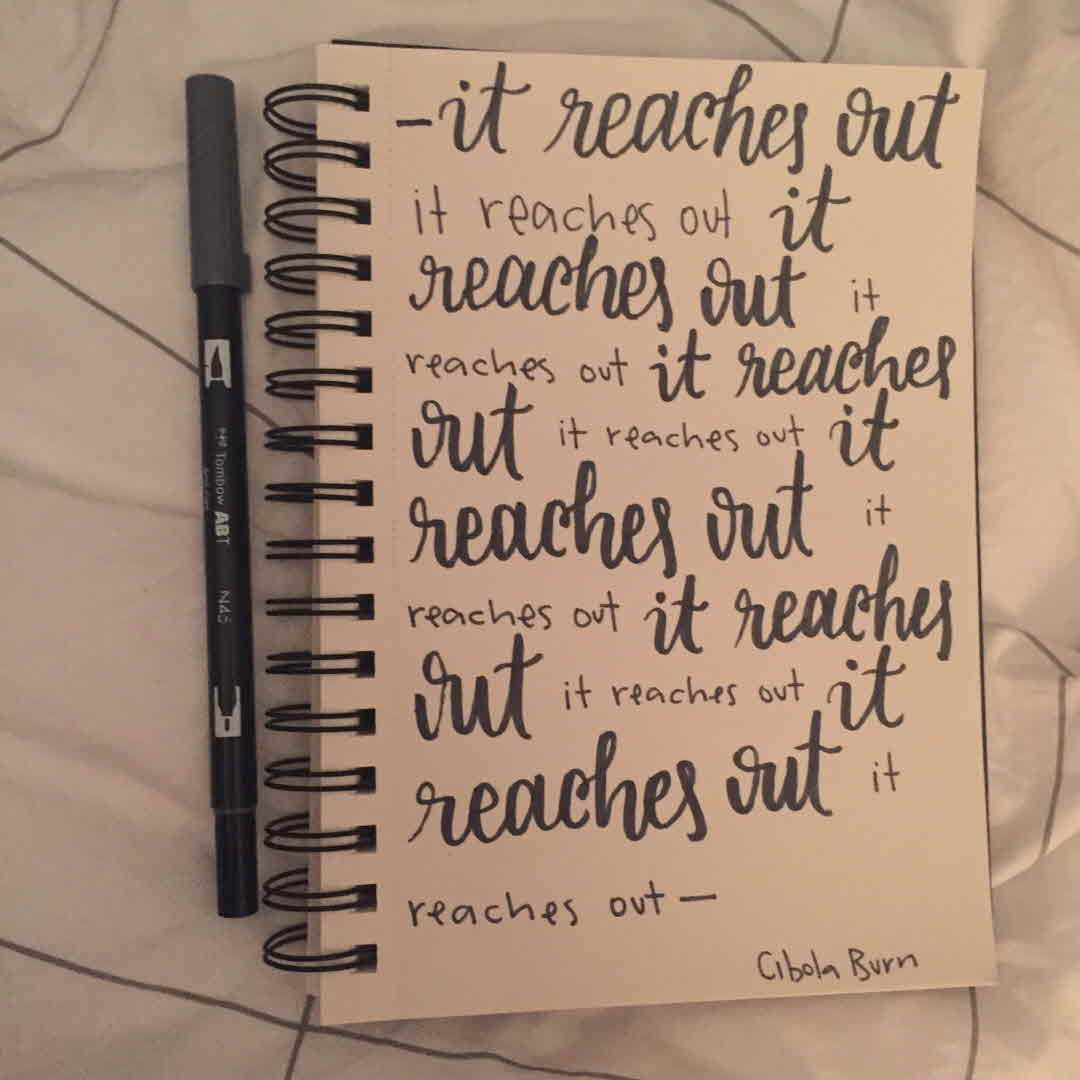 -it reaches out
it reaches out it
reaches out it
reaches out it reaches
out it reaches out it
reaches out it
reaches out it reaches
out it reaches out it
reaches out it
reaches out —
Cibola Burn
Tombow ABT
N45